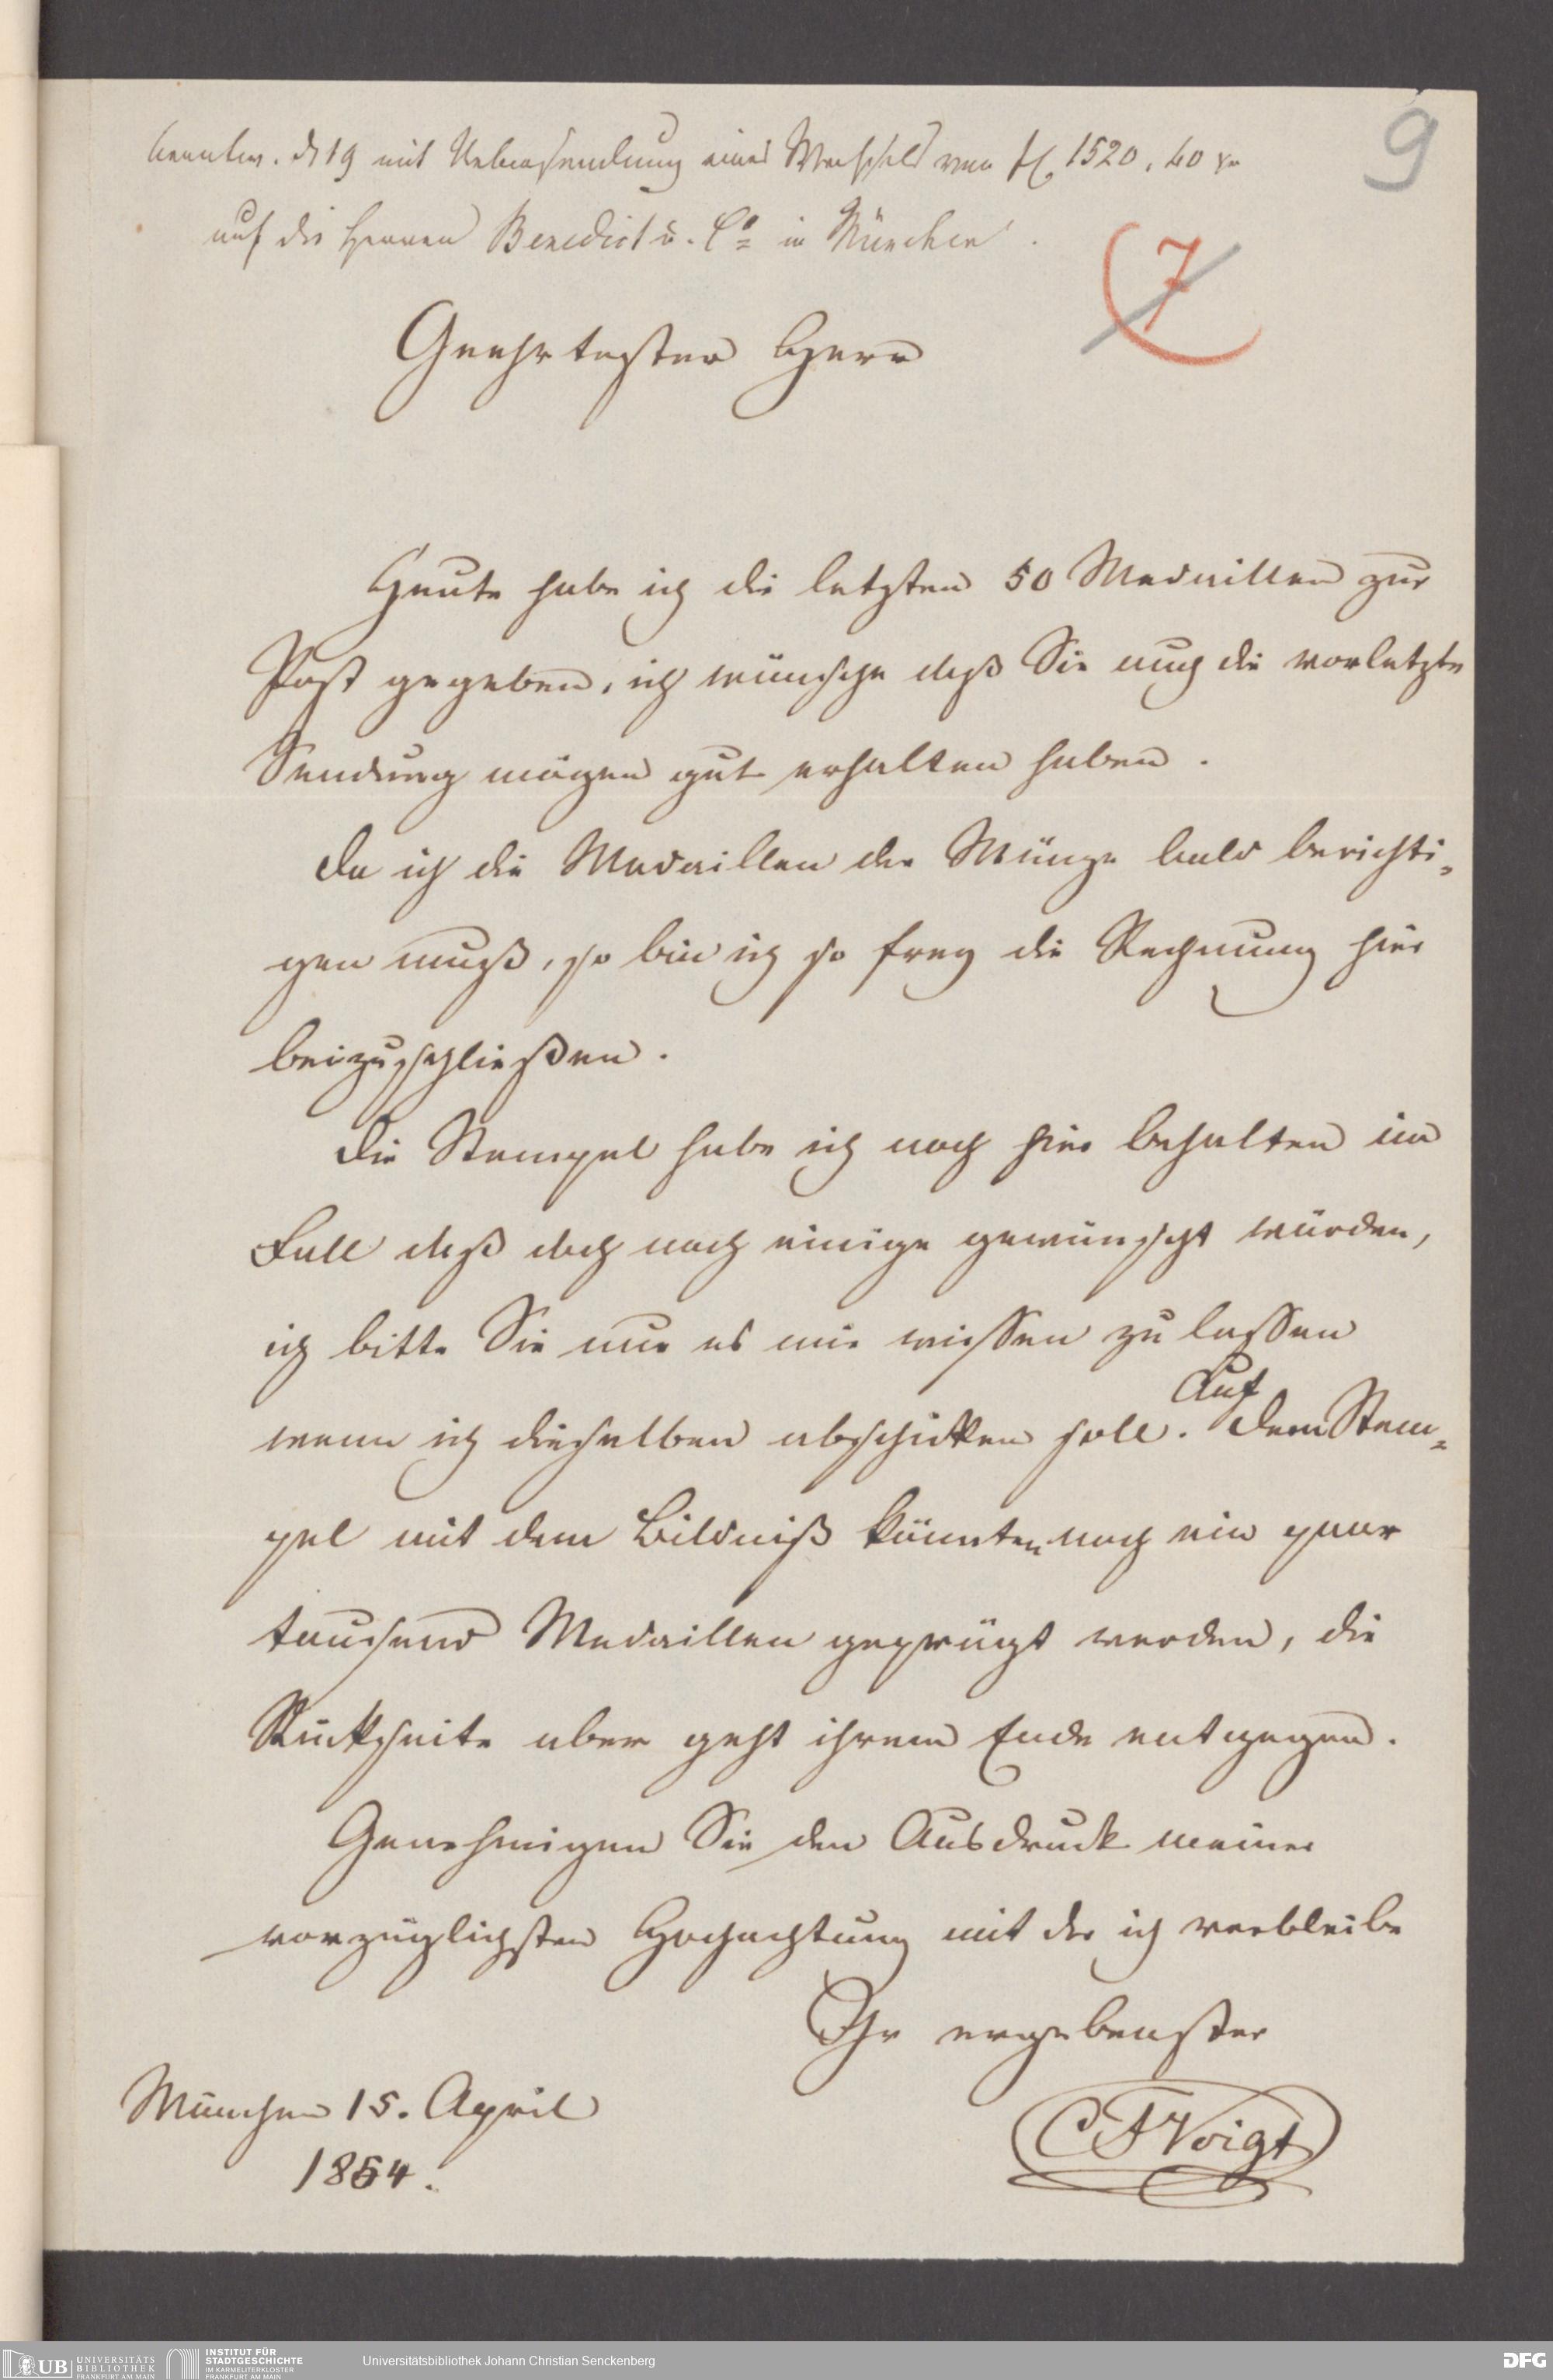 beantw. d 19 mit Uebersendung eines Wechsels von fl. 1520. 40 xr
auf die Herren Benedict u. Co in München.
9
7
Geehrtester Herr
Heute habe ich die letzten 50 Medaillen zur
Post gegeben, ich wünsche daß Sie auch die vorletzte
Sendung mögen gut erhalten haben.
Da ich die Medaillen der Münze bald berichti-
gen muß, so bin ich so frey die Rechnung hier
beizuschließen.
Die Stempel habe ich noch hier behalten im
Fall daß doch noch einige gewünscht würden,
ich bitte Sie nur es mir wissen zu lassen
wenn ich dieselben abschicken soll. Auf dem Stem-
pel mit dem Bildniß könnten noch ein paar
tausend Medaillen geprägt werden, die
Rückseite aber geht ihrem Ende entgegen.
Genehmigen Sie den Ausdruck meiner
vorzüglichsten Hochachtung mit der ich verbleibe
Ihr ergebenster
München 15. April
1854.
C F Voigt
UB UNIVERSITÄTS BIBLIOTHEK FRANKFURT AM MAIN
INSTITUT FÜR STADTGESCHICHTE IM KARMELITERKLOSTER FRANKFURT AM MAIN
Universitätsbibliothek Johann Christian Senckenberg
DFG